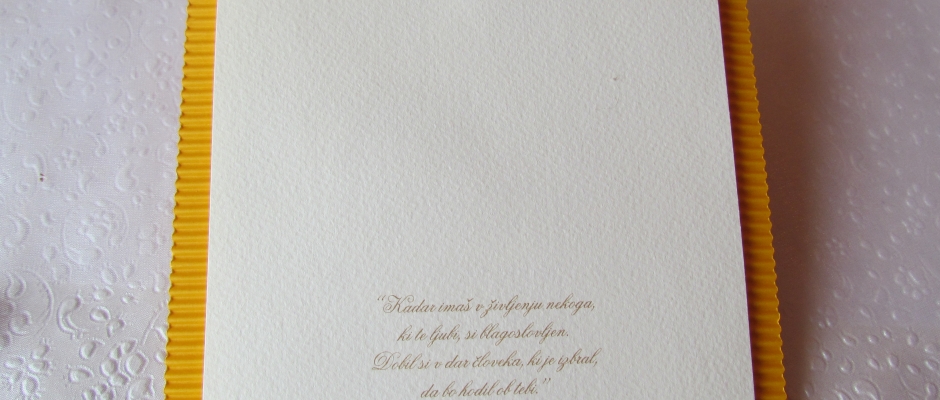 “Kadar imaš v življenju nekoga,
ki te ljubi, si blagoslovljen.
Dobil si v dar človeka, ki je izbral,
da bo hodil ob tebi.”